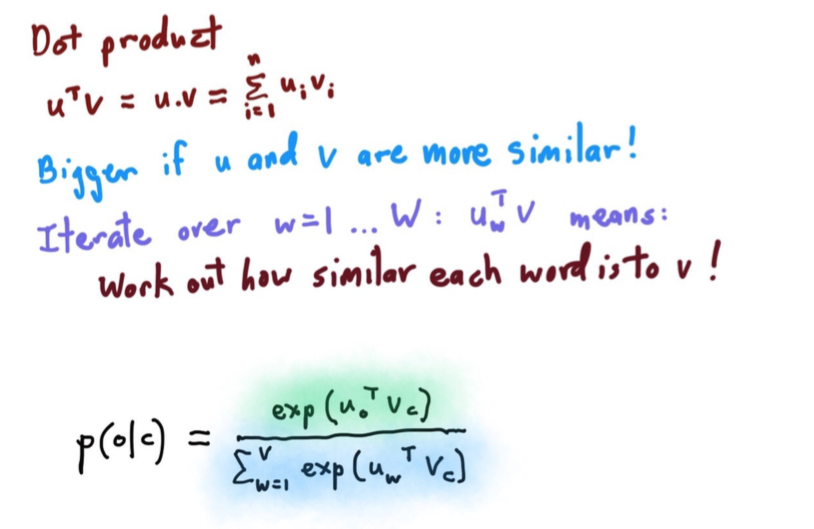 Dot product
uᵀv = u.v = Σⁿᵢ₌₁ uᵢvᵢ
Bigger if u and v are more similar!
Iterate over w=1 ... W : u_wᵀ v means:
Work out how similar each word is to v !
p(o|c) = exp(u_oᵀ v_c) / Σ^V_w=1 exp(u_wᵀ v_c)